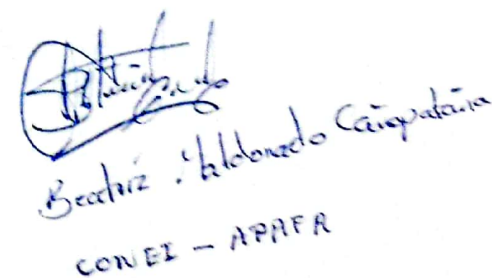 Beatriz Maldonado Cañapataña
CONEI - APAFA